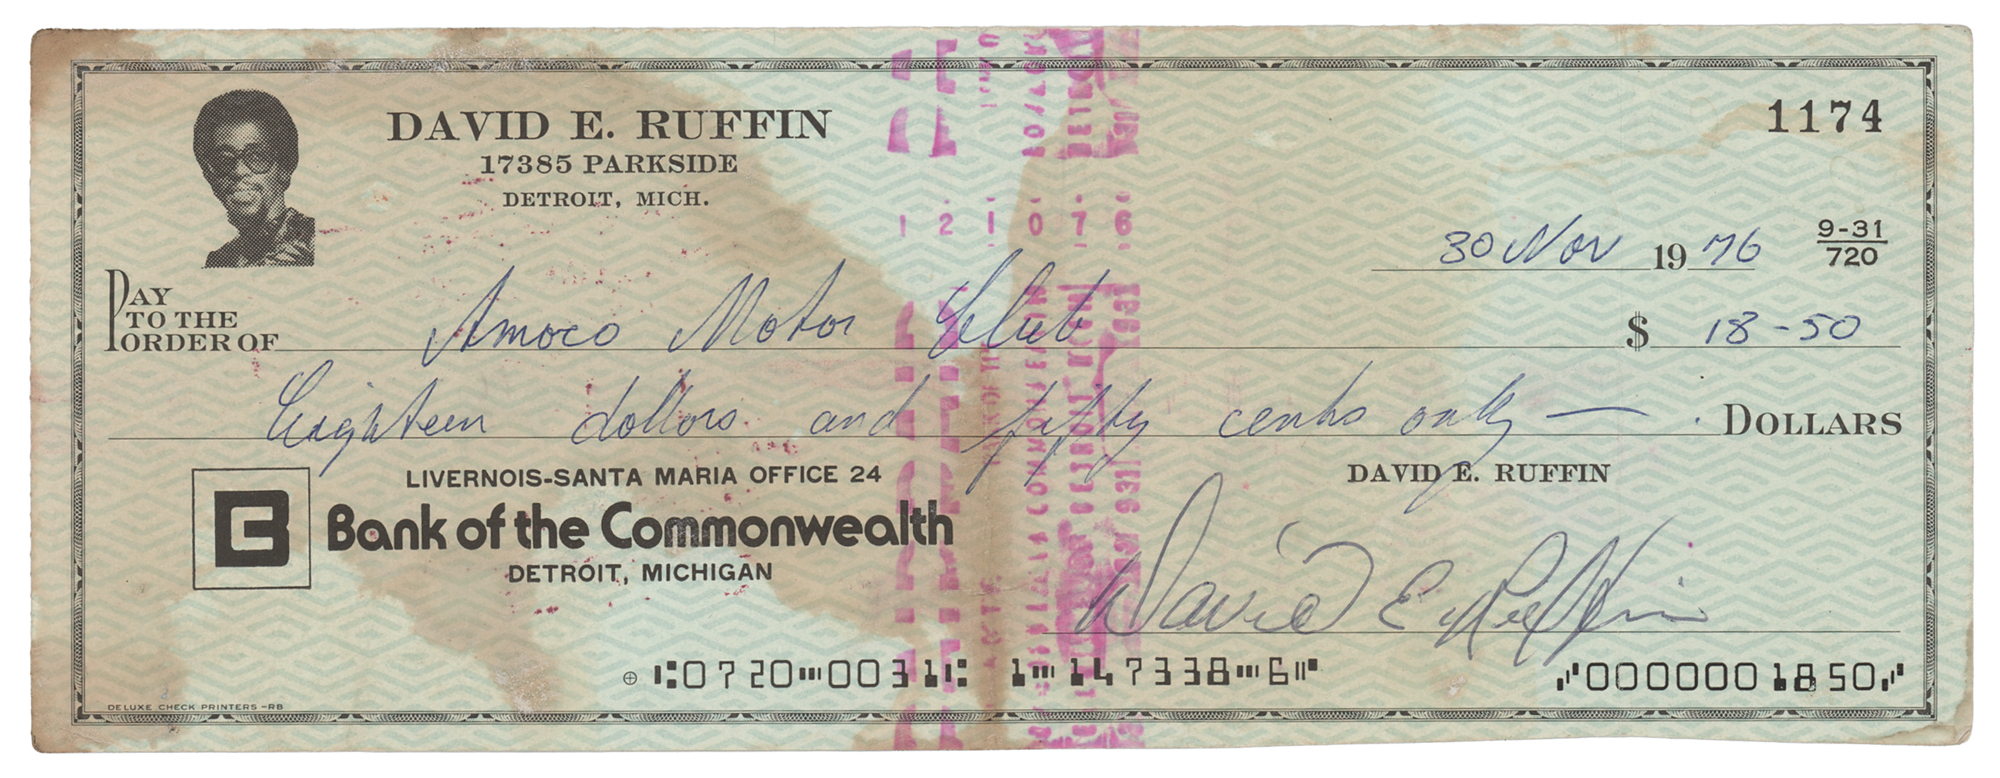 DAVID E. RUFFIN
17385 PARKSIDE
DETROIT, MICH.
1174
121076
30 Nov 1976
9-31
720
PAY TO THE ORDER OF Amoco Motor Club $ 18-50
Eighteen dollars and fifty cents only — . DOLLARS
LIVERNOIS-SANTA MARIA OFFICE 24
DAVID E. RUFFIN
B Bank of the Commonwealth
DETROIT, MICHIGAN
David E. Ruffin
⑆0720⑉0031⑆ 1⑉147338⑉6⑈ ⑇0000001850⑇
DELUXE CHECK PRINTERS -RB